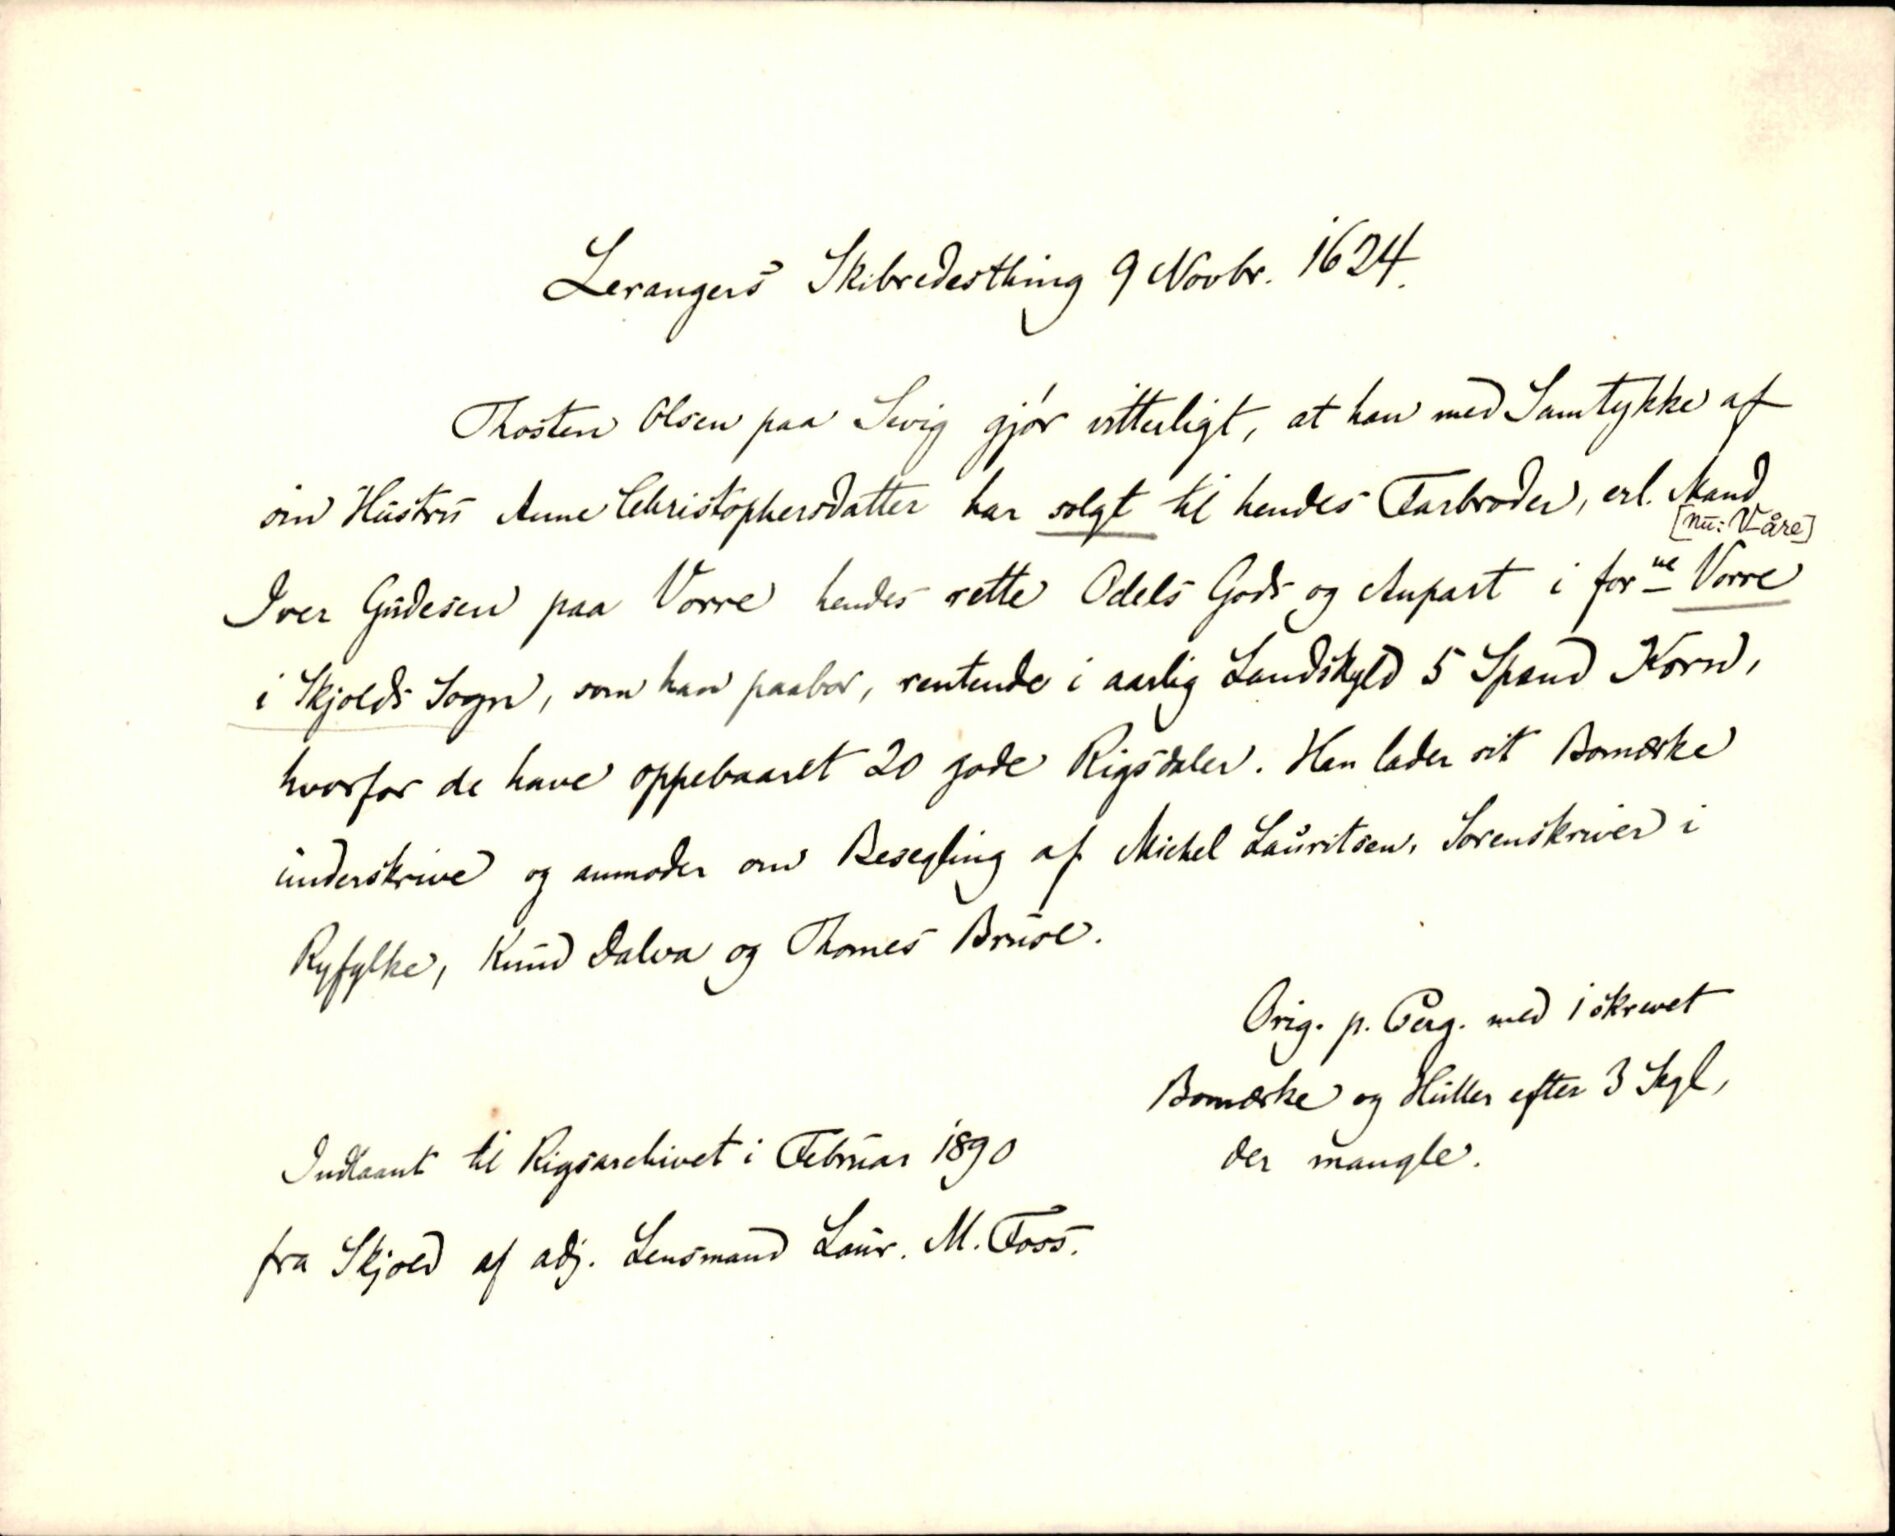 Lerangers Skibredesthing 9 Novbr. 1624.
Thosten Olsen paa Sevig gjør vitterligt, at han med Samtykke af
sin Hustru Anne Christophersdatter har solgt til hendes Farbroder, erl. Mand
[nu: Våre]
Iver Gudesen paa Vorre hendes rette Odels Gods og Anpart i forne Vorre
i Skjolds Sogn, som han paabor, rentende i aarlig Landskyld 5 Spand Korn,
hvorfor de have oppebaaret 20 gode Rigsdaler. Han lader sit Bomærke
underskrive og anmoder om Besegling af Michel Lauritsen, Sorenskriver i
Ryfylke, Knud Dalva og Thomes Bruse.
Orig. p. Perg. med iskrevet
Bomærke og Huller efter 3 Segl,
der mangle.
Indlaant til Rigsarchivet i Februar 1890
fra Skjold af adj. Lensmand Laur. M. Foss.